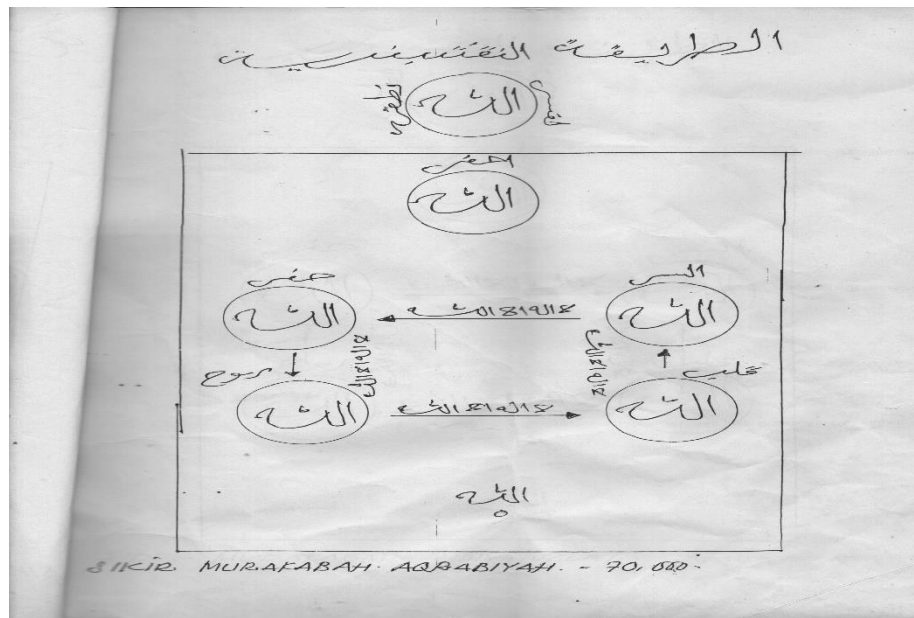 الطريقة النقشبندية
الله
اخفى
الله
خفى السر
الله لا اله الا الله الله
لا اله الا الله لا اله الا الله
روح قلب
الله لا اله الا الله الله
الله
ZIKIR MURAKABAH AQRABIYAH. - 70,000.